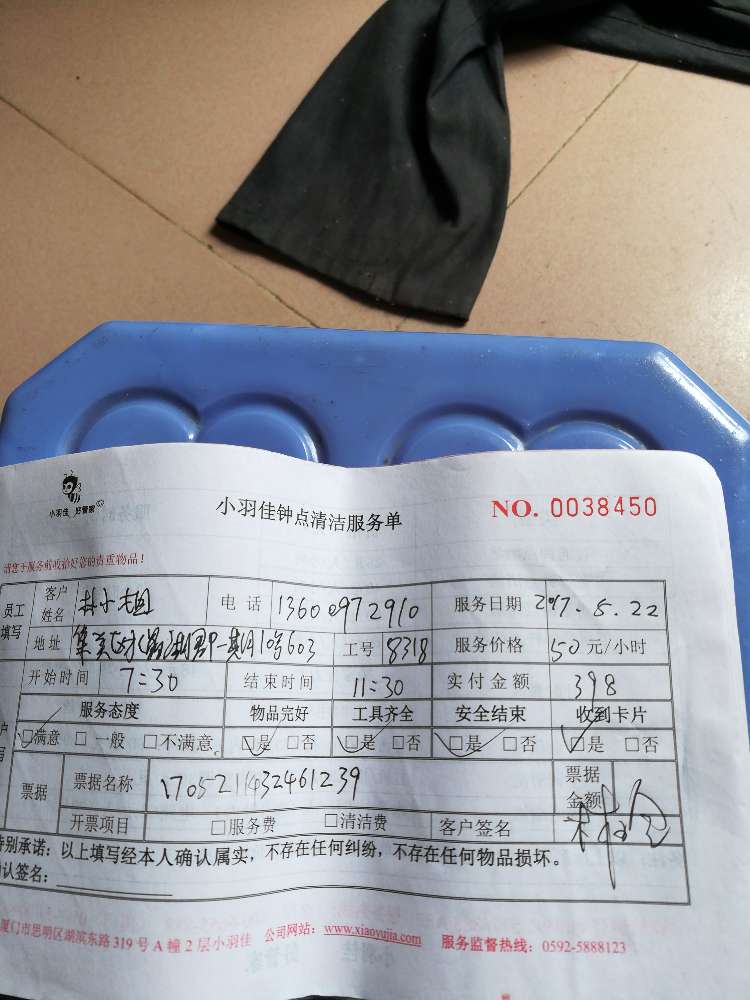 小羽佳 好管家
小羽佳钟点清洁服务单
NO. 0038450
请您于服务前收拾好您的贵重物品！
员工填写 客户姓名 林小姐 电话 13600972910 服务日期 2017.5.22
地址 集美 一期 10号603 工号 8318 服务价格 50元/小时
开始时间 7:30 结束时间 11:30 实付金额 398
服务态度 物品完好 工具齐全 安全结束 收到卡片
☑满意 □一般 □不满意 ☑是 □否 ☑是 □否 ☑是 □否 ☑是 □否
票据 票据名称 170521432461239 票据金额
开票项目 □服务费 □清洁费 客户签名
特别承诺：以上填写经本人确认属实，不存在任何纠纷，不存在任何物品损坏。
确认签名：
厦门市思明区湖滨东路319号A幢2层小羽佳 公司网站：www.xiaoyujia.com 服务监督热线：0592-5888123